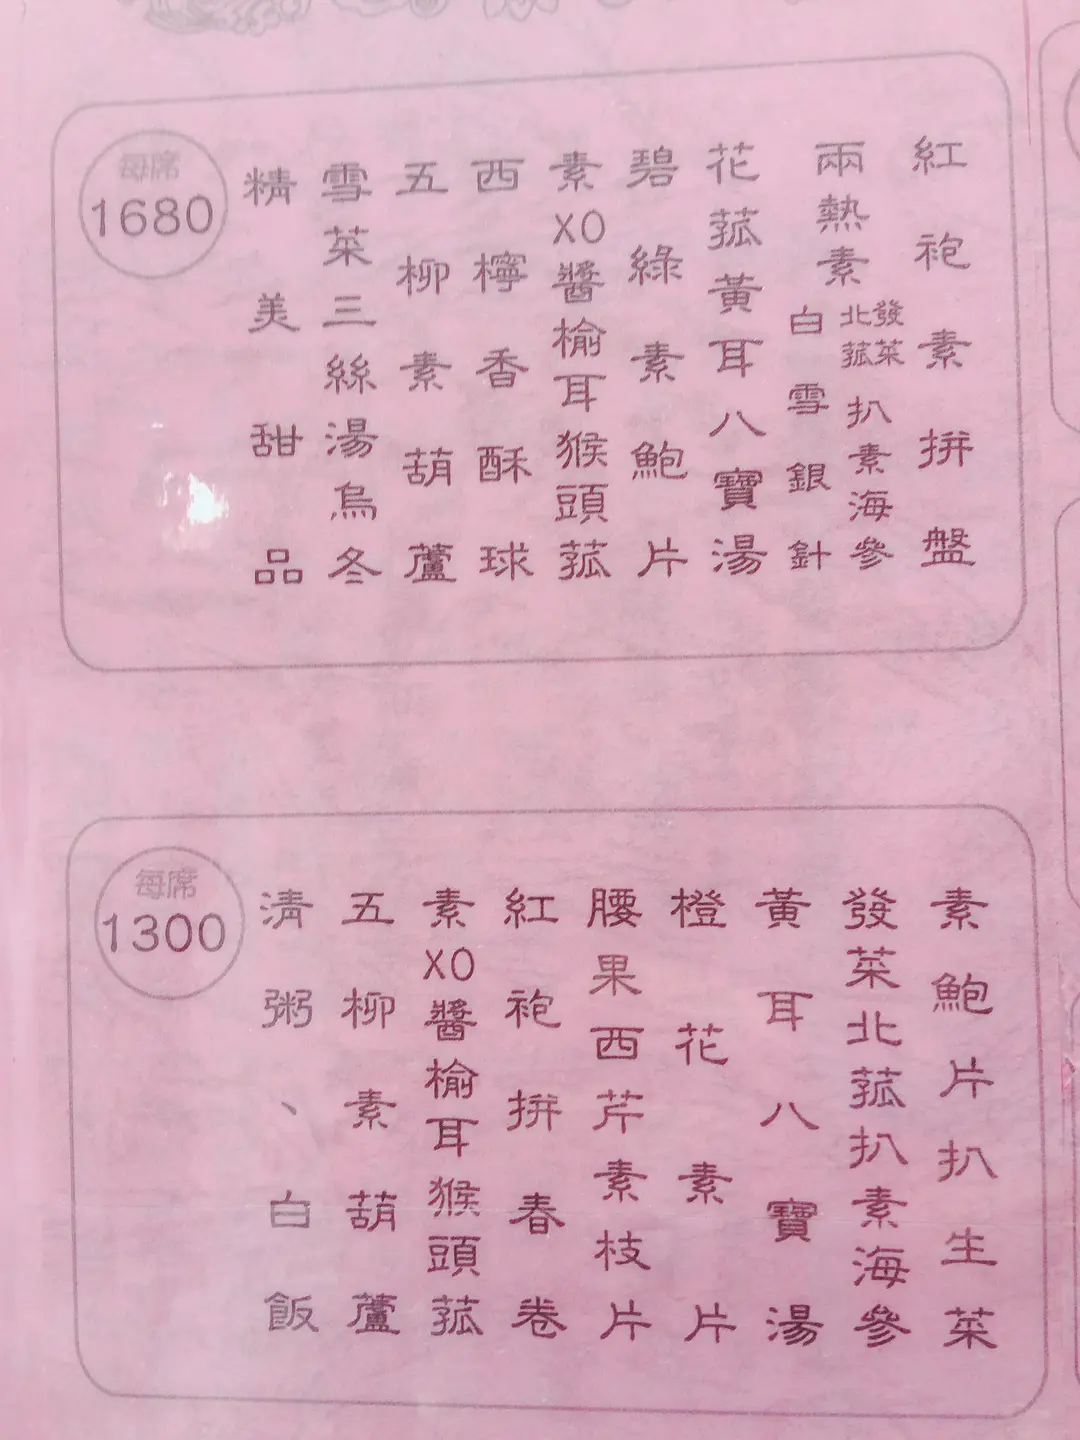 紅袍素拼盤
兩熱素
發菜北菰扒素海參
白雪銀針
花菰黃耳八寶湯
碧綠素鮑片
素XO醬榆耳猴頭菰
西檸香酥球
五柳素葫蘆
雪菜三絲湯烏冬
精美甜品
每席
1680
素鮑片扒生菜
發菜北菰扒素海參
黃耳八寶湯
橙花素片
腰果西芹素枝片
紅袍拼春卷
素XO醬榆耳猴頭菰
五柳素葫蘆
清粥、白飯
每席
1300